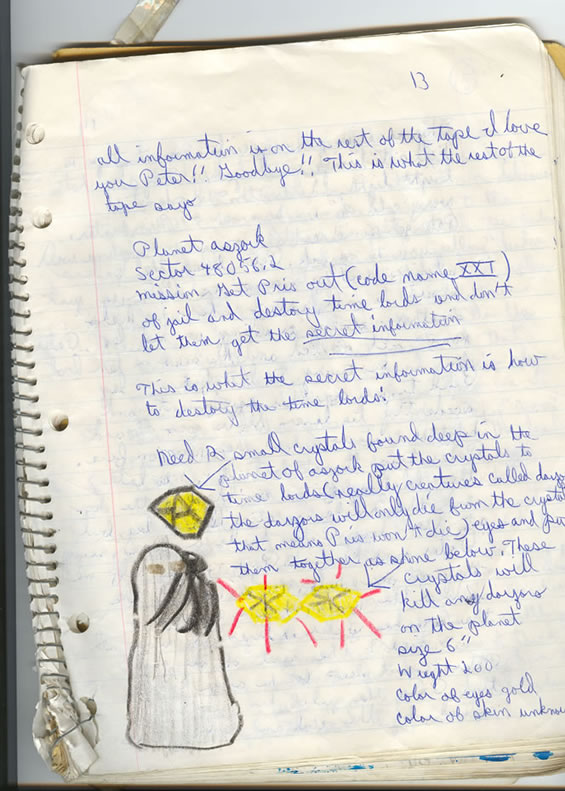 13
all information is on the rest of the tape I love
you Peter!! Goodbye!! This is what the rest of the
tape says
Planet aszork
Sector 48056.2
mission Get Pris out (code name XXI)
of jail and destory time lords and don't
let them get the secret information
This is what the secret information is how
to destory the time lords!
Need 2 small crystals found deep in the
planet of aszork put the crystals to
time lords (really creatures called
the dayzors will only die from the
that means Pris won't die) eyes and
them together as shine below. These
crystals will
kill any dayzors
on the planet
size 6"
Wieght 200
color of eyes gold
color of skin